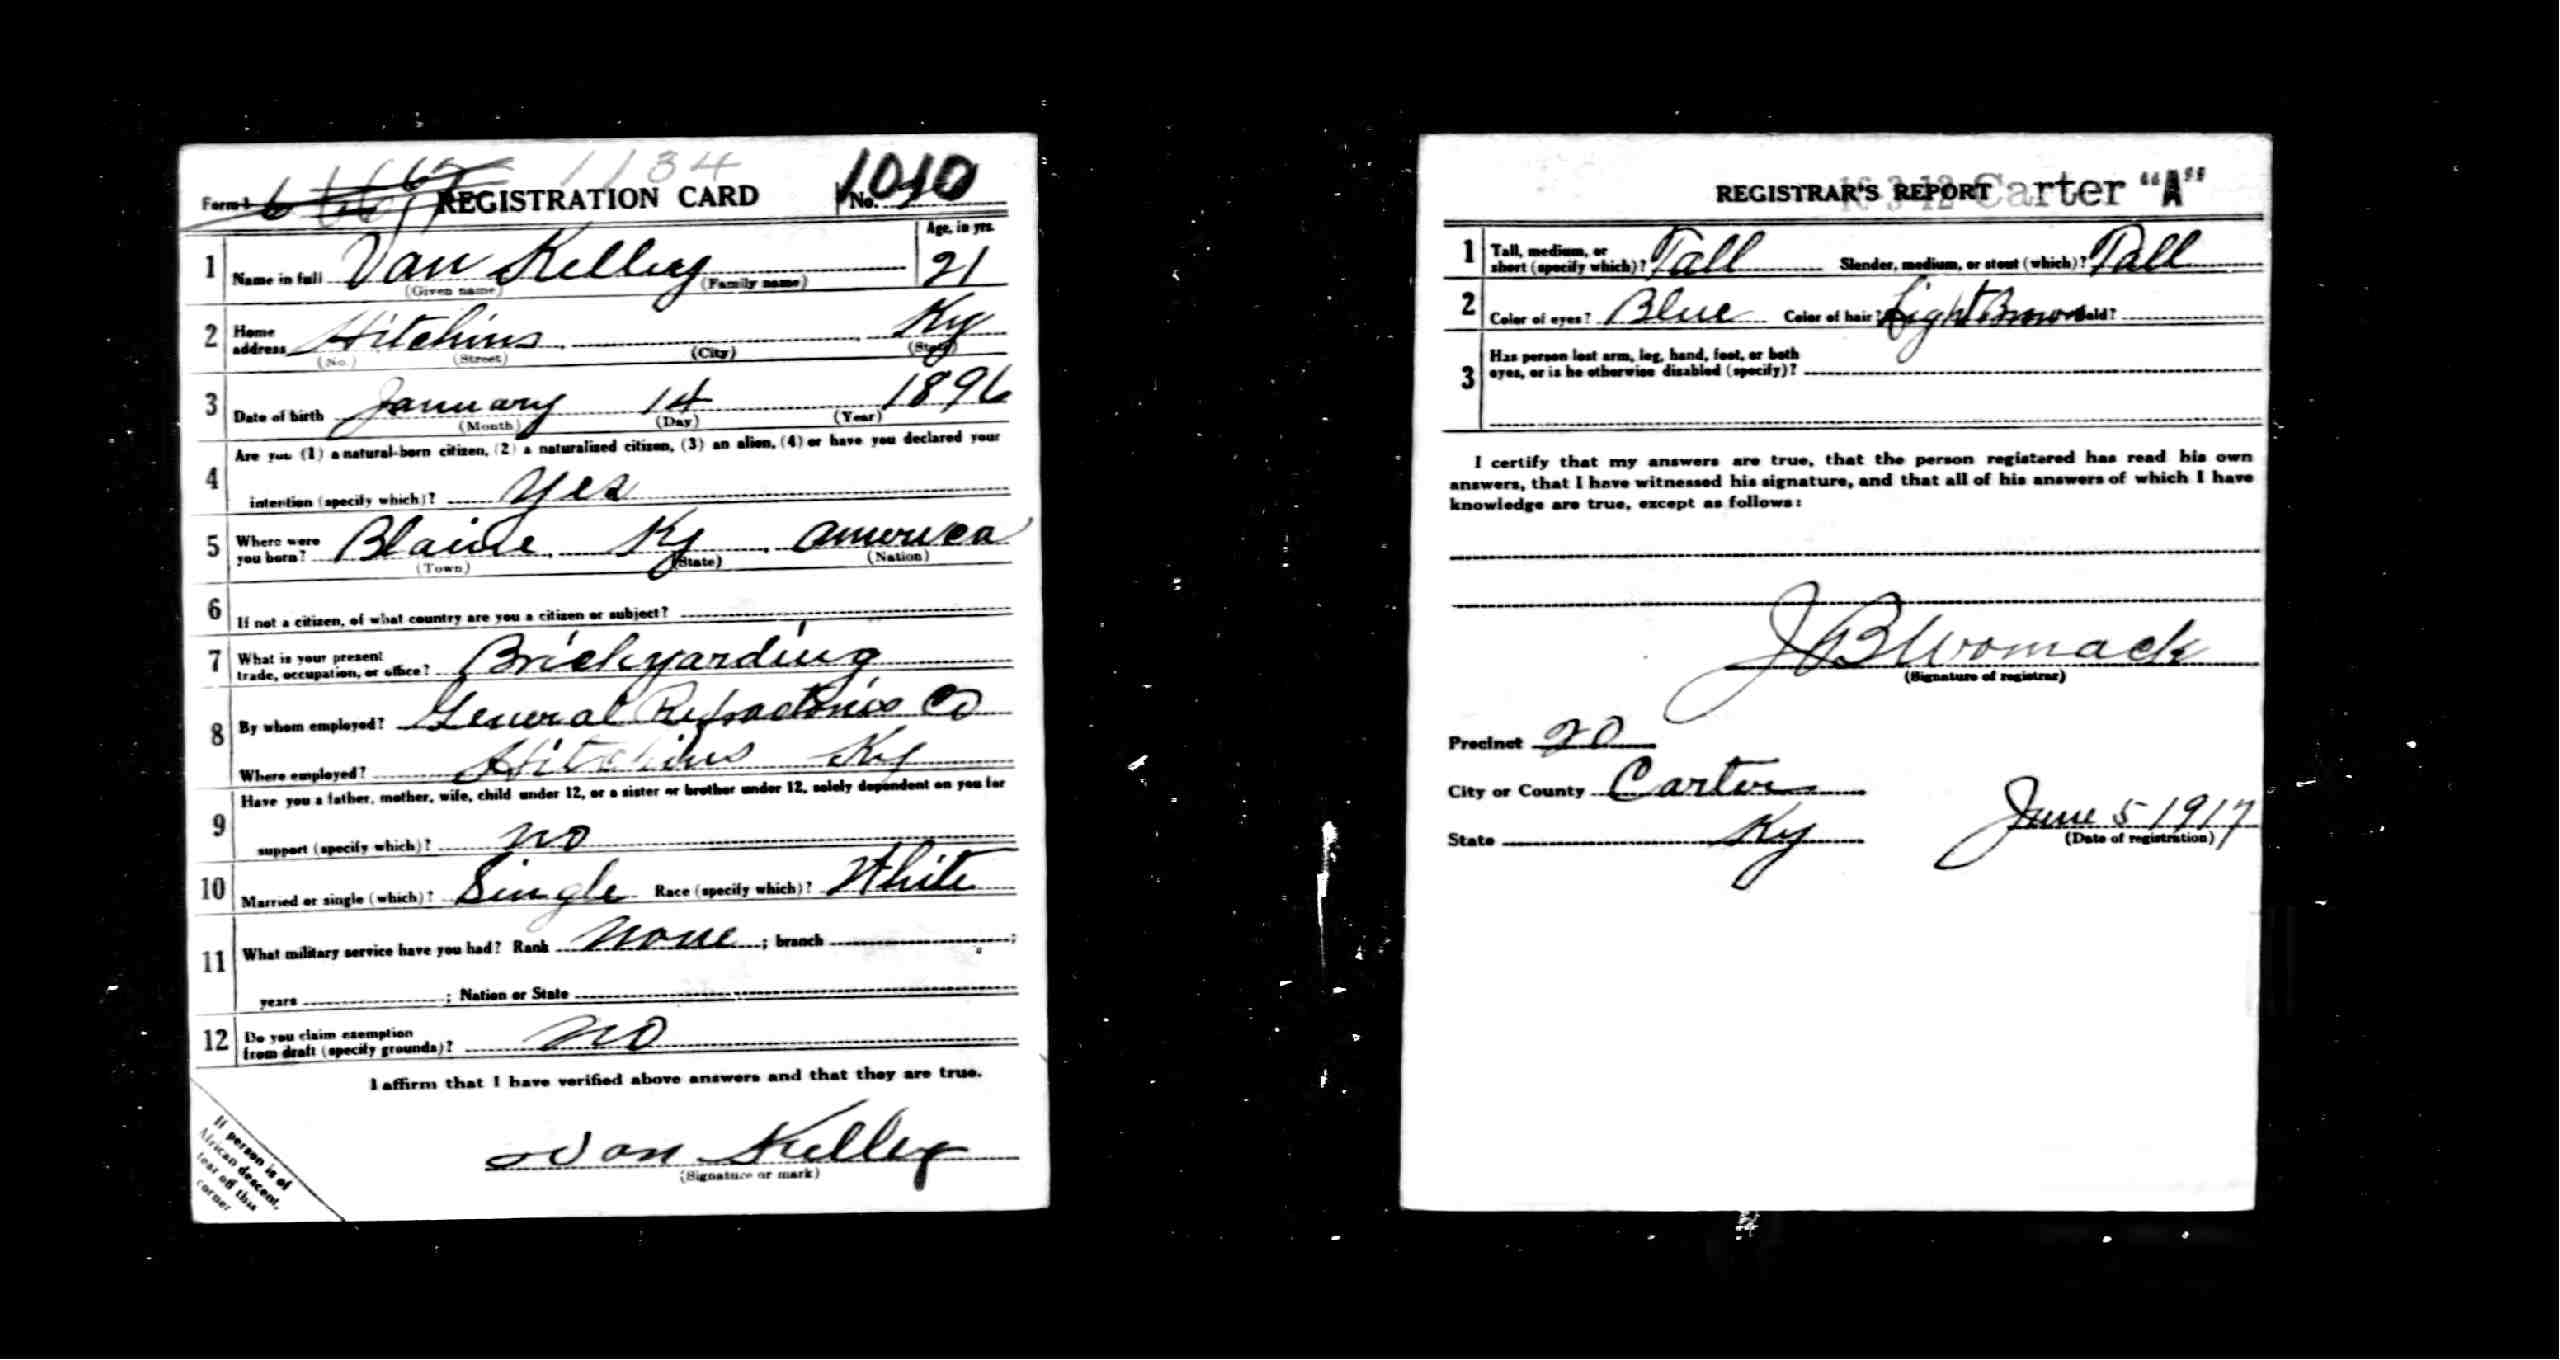 1134
Form 1 REGISTRATION CARD No. 1010
1 Name in full Van Kelley Age, in yrs. 21
(Given name) (Family name)
2 Home address Hitchins, Ky
(No.) (Street) (City) (State)
3 Date of birth January 14 1896
(Month) (Day) (Year)
4 Are you (1) a natural-born citizen, (2) a naturalized citizen, (3) an alien, (4) or have you declared your
intention (specify which)? Yes
5 Where were you born? Blaine, Ky, America
(Town) (State) (Nation)
6 If not a citizen, of what country are you a citizen or subject?
7 What is your present trade, occupation, or office? Brickyarding
8 By whom employed? General Refractories Co
Where employed? Hitchins Ky
9 Have you a father, mother, wife, child under 12, or a sister or brother under 12, solely dependent on you for
support (specify which)? no
10 Married or single (which)? Single Race (specify which)? White
11 What military service have you had? Rank none ; branch ;
years ; Nation or State
12 Do you claim exemption from draft (specify grounds)? no
I affirm that I have verified above answers and that they are true.
Van Kelley
(Signature or mark)
If person is of
African descent,
tear off this
corner
REGISTRAR'S REPORT 16-3-12 Carter "A"
1 Tall, medium, or short (specify which)? Tall Slender, medium, or stout (which)? Tall
2 Color of eyes? Blue Color of hair? Light Brown Bald?
3 Has person lost arm, leg, hand, foot, or both
eyes, or is he otherwise disabled (specify)?
I certify that my answers are true, that the person registered has read his own
answers, that I have witnessed his signature, and that all of his answers of which I have
knowledge are true, except as follows:
J B Womack
(Signature of registrar)
Precinct 20
City or County Carter
State Ky June 5 1917
(Date of registration)